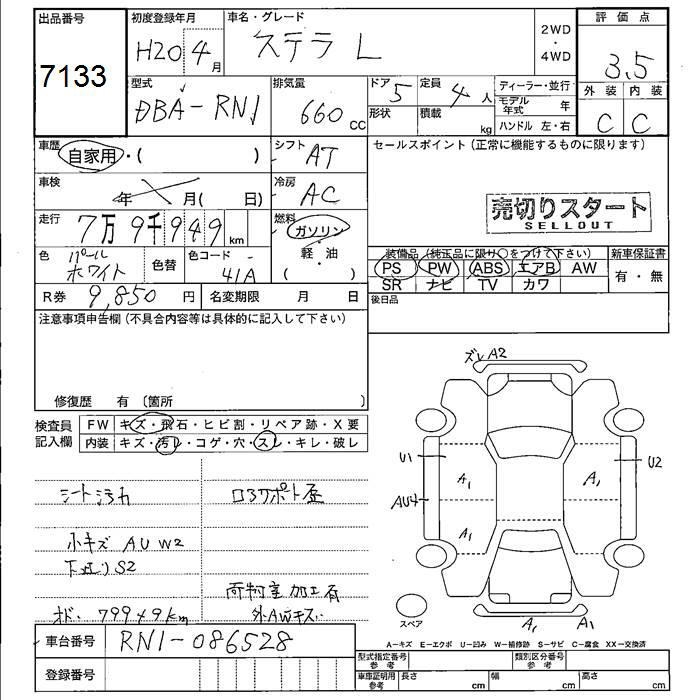 出品番号 初度登録年月 車名・グレード 2WD・4WD 評価点
7133 H20 4月 ステラ L 3.5
型式 排気量 ドア 5 定員 4人 ディーラー・並行 外装 内装
DBA-RN1 660cc 形状 積載 kg モデル年式 年 C C
ハンドル 左・右
車歴 自家用・( ) シフト AT セールスポイント(正常に機能するものに限ります)
車検 年 月( 日) 冷房 AC 売切りスタート
SELLOUT
走行 7万9千949km 燃料 ガソリン
軽・油
( )
色 パールホワイト 色替 色コード 41A
装備品(純正品に限り○をつけて下さい) 新車保証書
PS PW ABS エアB AW 有・無
SR ナビ TV カワ
R券 9,850円 名変期限 月 日 後日品
注意事項申告欄(不具合内容等は具体的に記入して下さい)
修復歴 有 〔箇所 〕
検査員記入欄 FW キズ・飛石・ヒビ割・リペア跡・X要
内装 キズ・汚レ・コゲ・穴・スレ・キレ・破レ
シート汚れ
小キズ AU W2
S2
79949km
荷物室加工有
外AWキズ
ズレA2
U1 A1 A1 U2
AU4 A1
スペア A1 A1
A-キズ E-エクボ U-凹み W-補修跡 S-サビ C-腐食 XX-交換済
車台番号 RN1-086528
型式指定番号 参考 類別区分番号 参考
登録番号 車庫証明用 参考 長さ cm 幅 cm 高さ cm